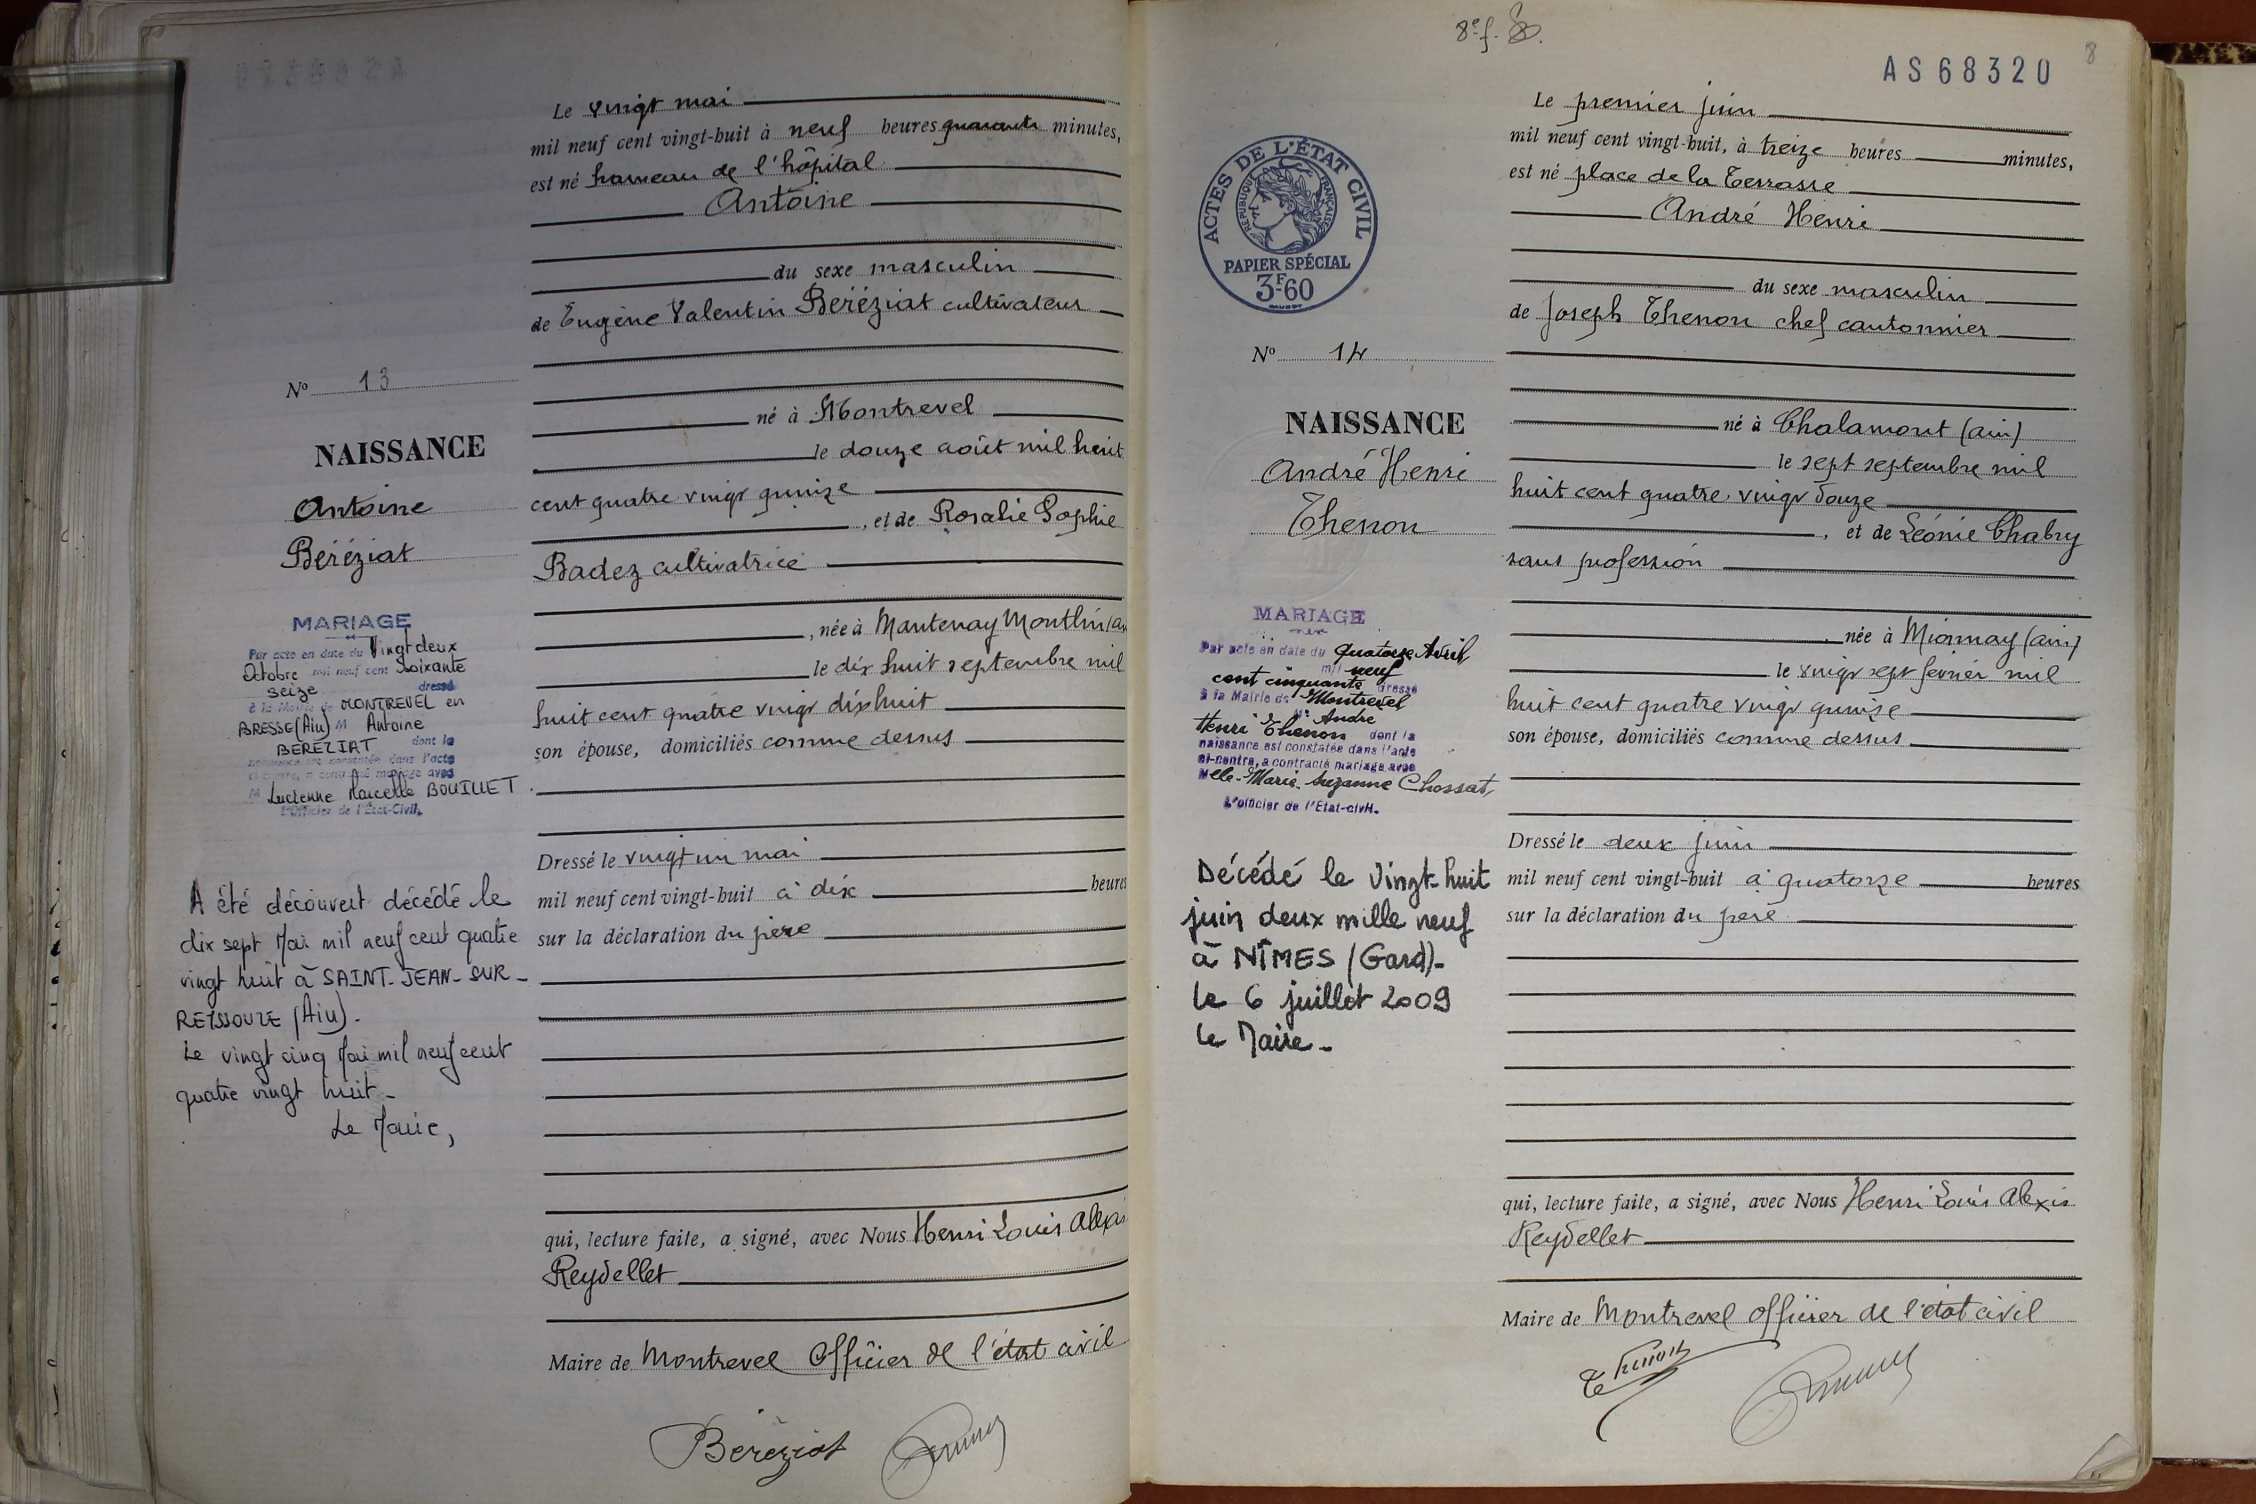 Le vingt mai
mil neuf cent vingt-huit à neuf heures quarante minutes,
est né hameau de l'hôpital
Antoine
du sexe masculin
de Eugène Valentin Béréziat cultivateur
né à Montrevel
le douze août mil huit
cent quatre vingt quinze
, et de Rosalie Sophie
Badez cultivatrice
, née à Mantenay Montlin
le dix huit septembre mil
huit cent quatre vingt dix huit
son épouse, domiciliés comme dessus
Dressé le vingt un mai
mil neuf cent vingt-huit à dix heures
sur la déclaration du père
qui, lecture faite, a signé, avec Nous Henri Louis Alexis
Reydellet
Maire de Montrevel Officier de l'état civil
Béréziat
Nº 13
NAISSANCE
Antoine
Béréziat
MARIAGE
Par acte en date du Vingt deux
Octobre mil neuf cent Soixante
seize dressé
à la Mairie de MONTREVEL en
BRESSE (Ain) M Antoine
BEREZIAT dont la
naissance est constatée dans l'acte
ci-contre, a contracté mariage avec
M Lucienne Marcelle BOUILLET
L'Officier de l'Etat-Civil,
A été découvert décédé le
dix sept Mai mil neuf cent quatre
vingt huit à SAINT-JEAN-SUR-
REYSSOUZE (Ain).
Le vingt cinq Mai mil neuf cent
quatre vingt huit_
Le Maire,
8e f.
8
AS68320
ACTES DE L'ÉTAT CIVIL
RÉPUBLIQUE FRANÇAISE
PAPIER SPÉCIAL
3F60
Le premier juin
mil neuf cent vingt-huit, à treize heures minutes,
est né place de la Terrasse
André Henri
du sexe masculin
de Joseph Thenon chef cantonnier
né à Chalamont (ain)
le sept septembre mil
huit cent quatre vingt douze
, et de Léonie Chabry
sans profession
, née à Mionnay (ain)
le vingt sept février mil
huit cent quatre vingt quinze
son épouse, domiciliés comme dessus
Dressé le deux juin
mil neuf cent vingt-huit à quatorze heures
sur la déclaration du père
qui, lecture faite, a signé, avec Nous Henri Louis Alexis
Reydellet
Maire de Montrevel Officier de l'état civil
Thenon
Nº 14
NAISSANCE
André Henri
Thenon
MARIAGE
Par acte en date du quatorze Avril
mil neuf
cent cinquante dressé
à la Mairie de Montrevel
Mr André
Henri Thenon dont la
naissance est constatée dans l'acte
ci-contre, a contracté mariage avec
Melle Marie-Suzanne Chossat,
L'officier de l'Etat-civil.
Décédé le Vingt-huit
juin deux mille neuf
à NÎMES (Gard)-
le 6 juillet 2009
Le Maire -